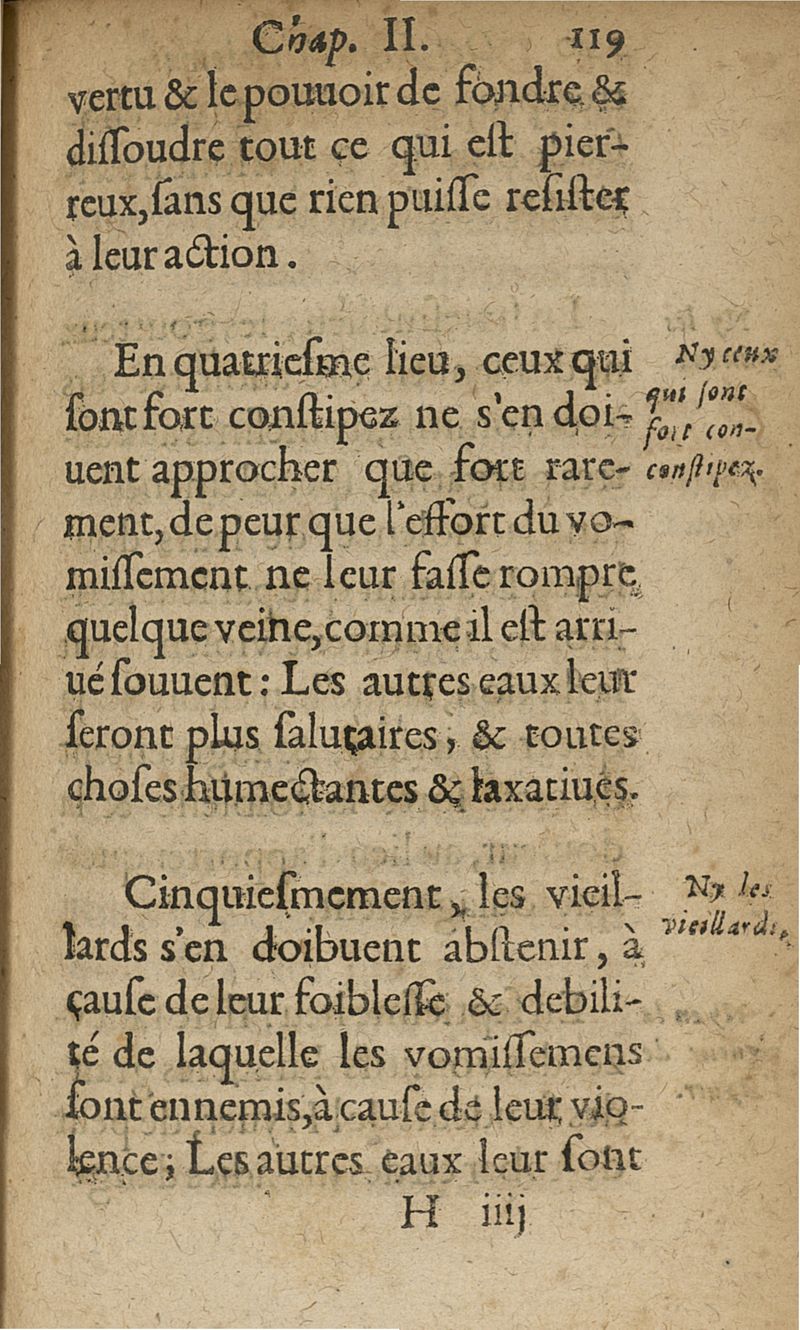 Chap. II. 119
vertu & le pouuoir de fondre &
dissoudre tout ce qui est pier-
reux, sans que rien puisse resister
à leur action.
En quatriesme lieu, ceux qui
sont fort constipez ne s'en doi-
uent approcher que fort rare-
ment, de peur que l'effort du vo-
missement ne leur fasse rompre
quelque veine, comme il est arri-
ué souuent : Les autres eaux leur
seront plus salutaires, & toutes
choses humectantes & laxatiues.
Ny ceux
qui sont
fort con-
constipez.
Cinquiesmement, les vieil-
lards s'en doibuent abstenir, à
cause de leur foiblesse & debili-
té de laquelle les vomissemens
sont ennemis, à cause de leur vio-
lence ; Les autres eaux leur sont
Ny les
vieillards,
H iiij